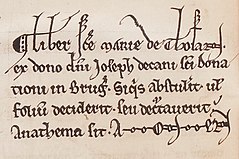 Liber sce marie de
ex dono dni Joseph decani sci dona
tiani in Brug. Siqs abstulit ul
folium deciderit. seu detᷓctauerit
Anathema sit. A